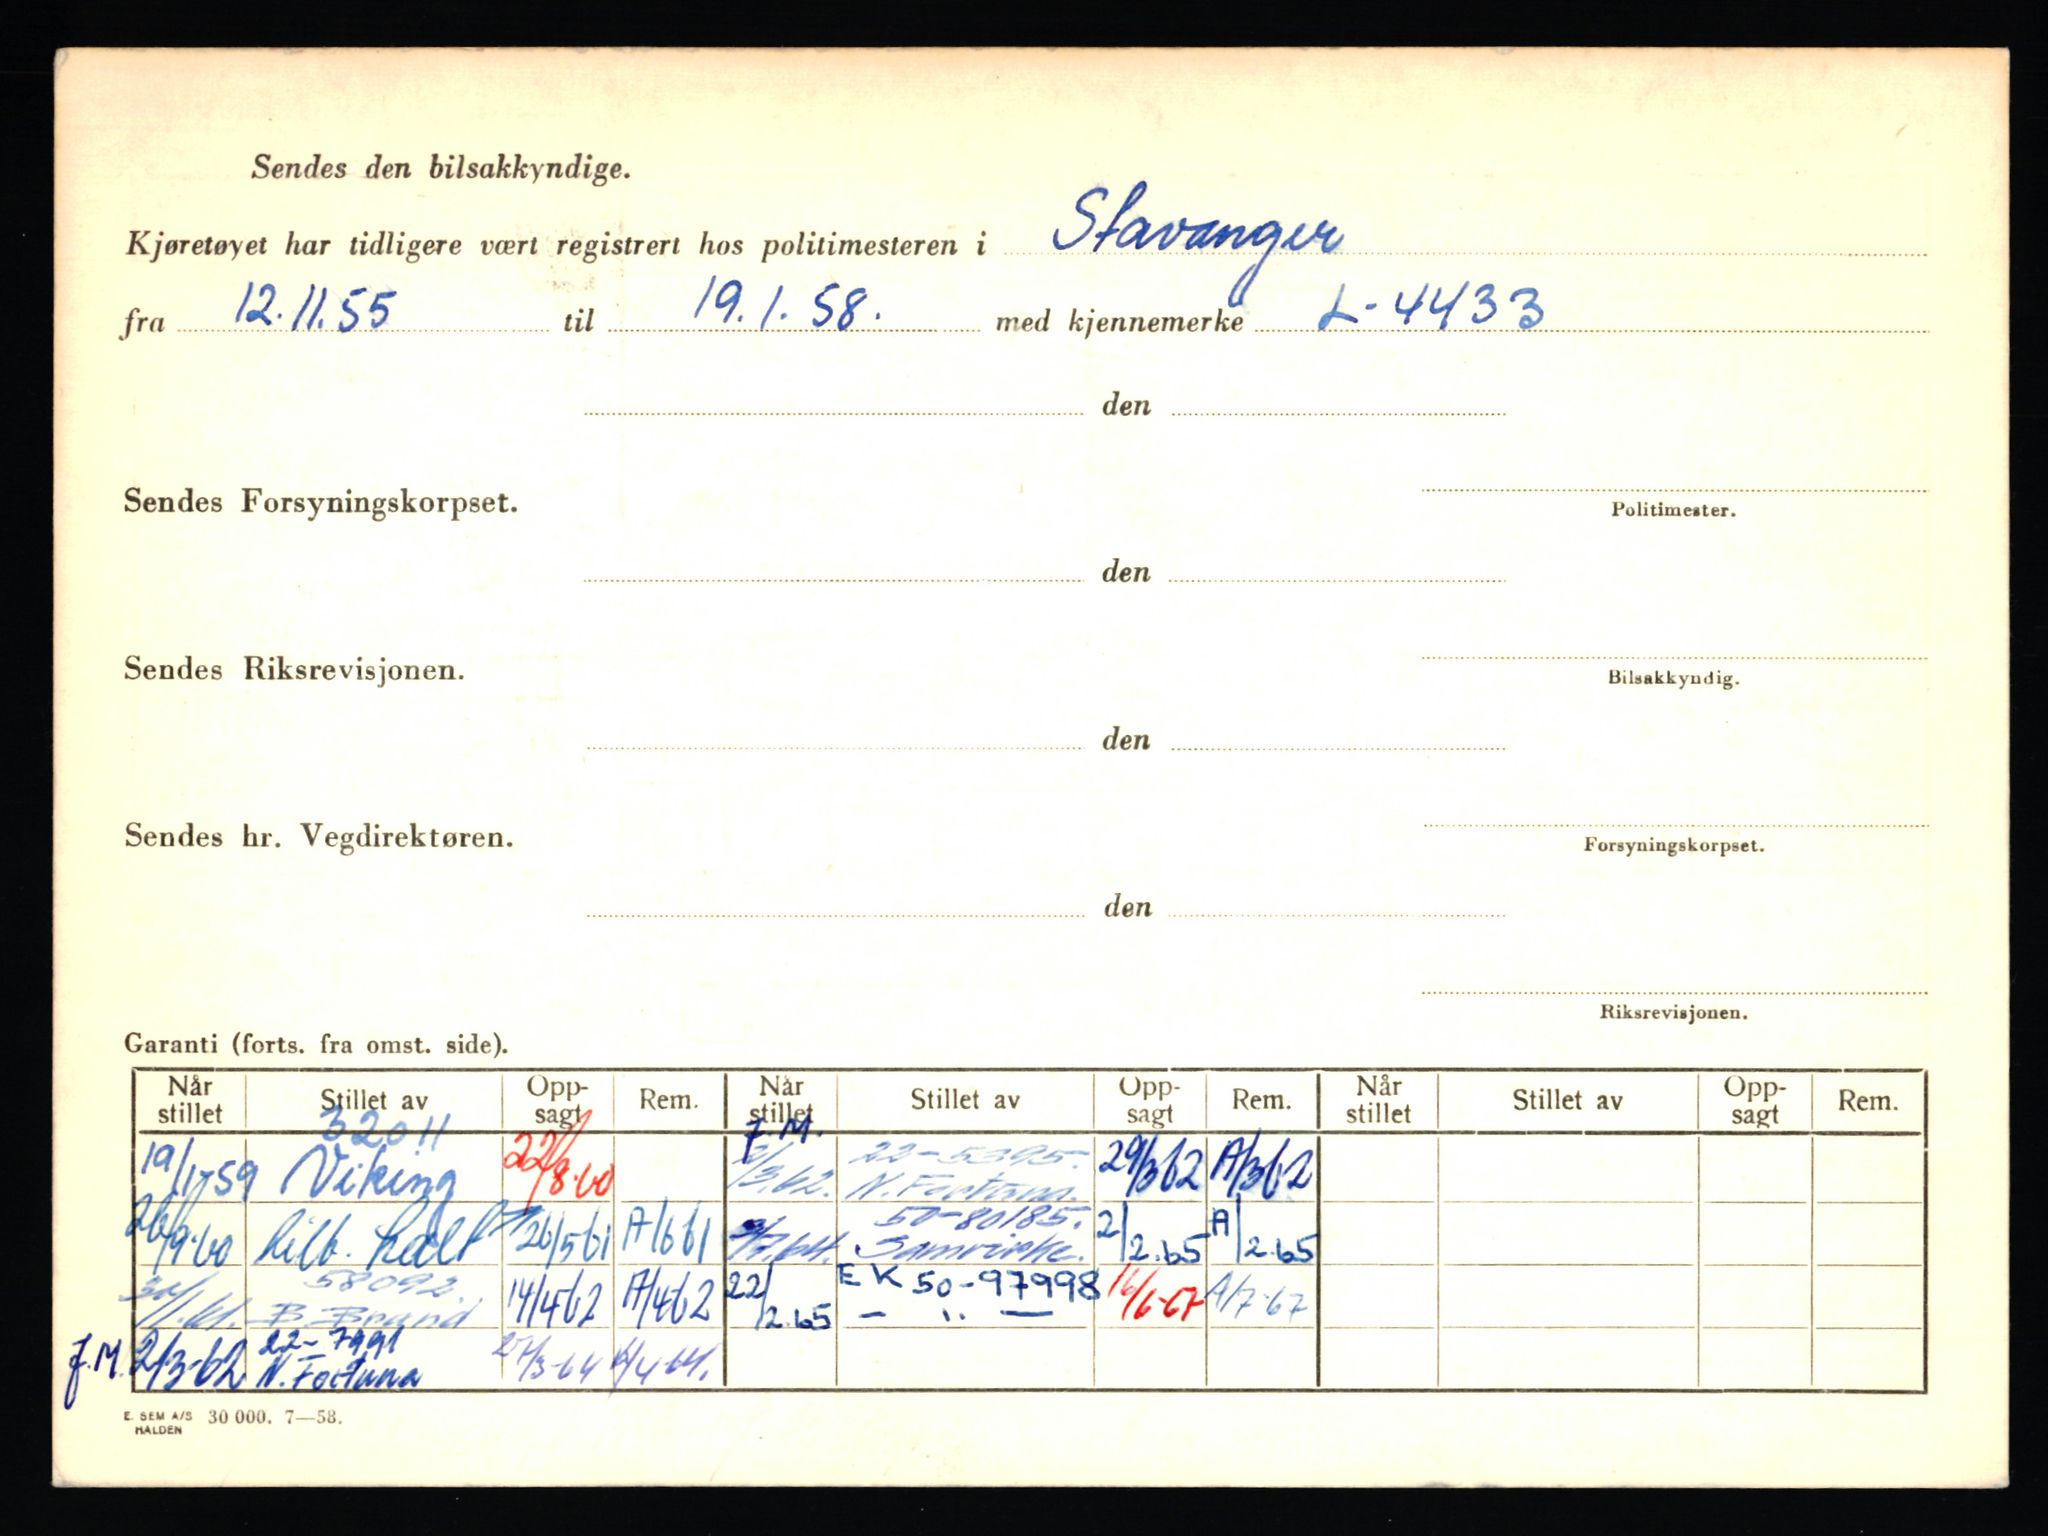 Sendes den bilsakkyndige.
Kjøretøyet har tidligere vært registrert hos politimesteren i Stavanger
fra 12.11.55 til 19.1.58. med kjennemerke L-4433
den
Sendes Forsyningskorpset.
Politimester.
den
Sendes Riksrevisjonen.
Bilsakkyndig.
den
Sendes hr. Vegdirektøren.
Forsyningskorpset.
den
Riksrevisjonen.
Garanti (forts. fra omst. side).
Når stillet Stillet av Opp-sagt Rem. Når stillet Stillet av Opp-sagt Rem. Når stillet Stillet av Opp-sagt Rem.
32011
19/1-59 Viking 22/8.60
26/9.60 26/5 61 A/6 61
58092
B. Brand 14/4 62 A/4 62
22-7991
J.M. 2/3-62 N. Fortuna 27/3-64 A/4-64.
J.M.
22-5395.
2/3.62. N. Fortuna. 29/3 62 A/3 62
50-80185.
Samvirke. 2/2.65 A/2.65
EK 50-97998
22/2.65 — ,, — 16/6-67 A/7-67
E. SEM A/S 30 000. 7—58.
HALDEN